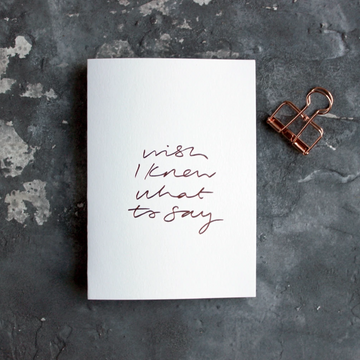 wish
I knew
what
to say